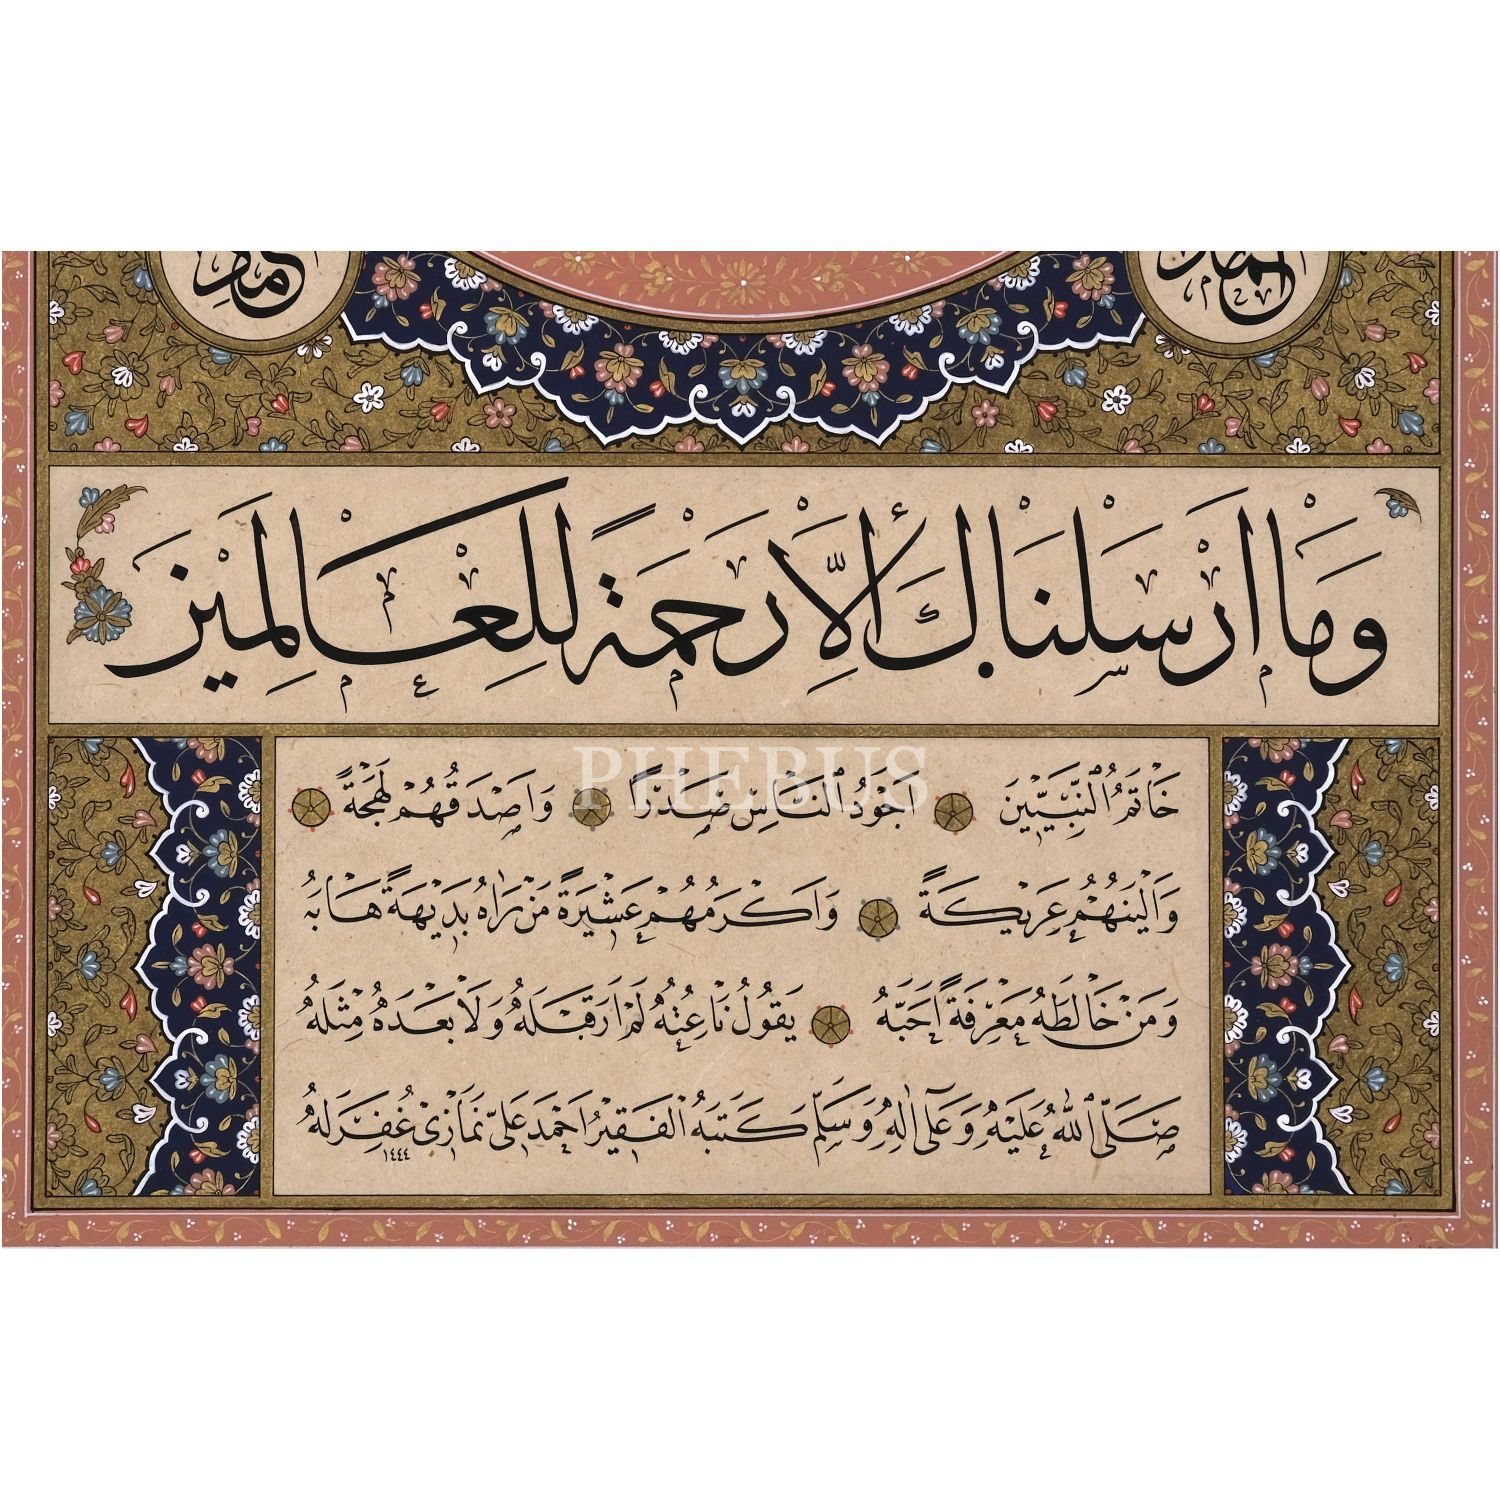 وَمَا اَرْسَلْنَاكَ اِلَّا رَحْمَةً لِلْعَالَمِينَ
PHEBUS
خَاتَمُ النَّبِيِّينَ اَجْوَدُ النَّاسِ صَدْرًا وَاَصْدَقُهُمْ لَهْجَةً
وَاَلْيَنُهُمْ عَرِيكَةً وَاَكْرَمُهُمْ عَشِيرَةً مَنْ رَاٰهُ بَدِيهَةً هَابَهُ
وَمَنْ خَالَطَهُ مَعْرِفَةً اَحَبَّهُ يَقُولُ نَاعِتُهُ لَمْ اَرَ قَبْلَهُ وَلَا بَعْدَهُ مِثْلَهُ
صَلَّى اللّٰهُ عَلَيْهِ وَعَلٰى اٰلِهِ وَسَلَّمَ كَتَبَهُ الْفَقِيرُ اَحْمَدَ عَلِيّ نَمَازِي غُفِرَ لَهُ ١٤٤٤